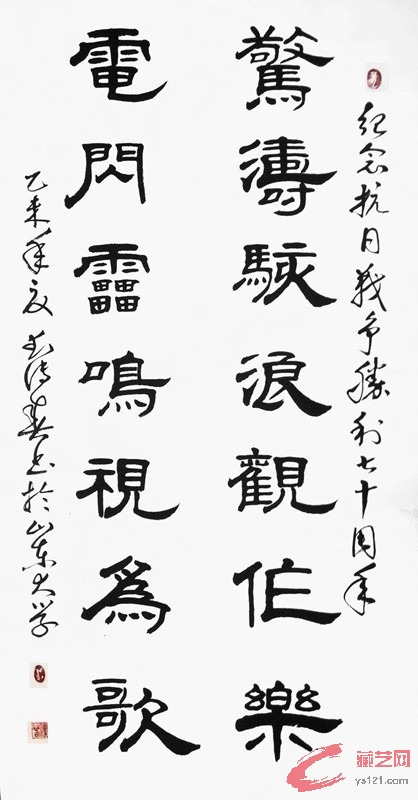 紀念抗日戰争勝利七十周年
驚濤駭浪觀作樂
電閃靁鳴視爲歌
乙未年夏 书於山东大学
藏艺网
ys121.com